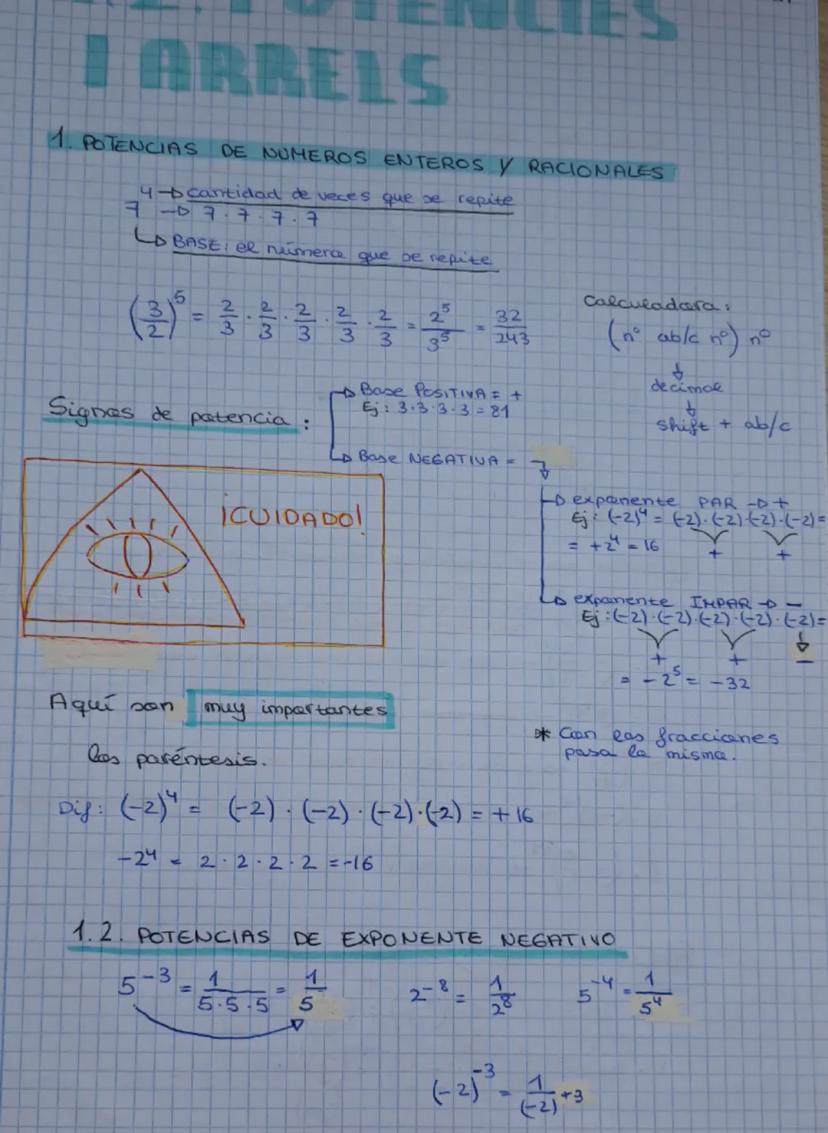 1.2. POTENCIES
I ARRELS
1. POTENCIAS DE NUMEROS ENTEROS Y RACIONALES
7^4 → cantidad de veces que se repite
→ 7·7·7·7
↳ BASE: el número que se repite
(3/2)^5 = 2/3 · 2/3 · 2/3 · 2/3 · 2/3 = 2^5/3^5 = 32/243
Calculadora:
(nº ab/c nº) nº
↓
decimal
↓
shift + ab/c
Signos de potencia:
→ Base POSITIVA = +
Ej: 3·3·3·3 = 81
↳ Base NEGATIVA = ↓
→ exponente PAR → +
Ej: (-2)^4 = (-2)·(-2)·(-2)·(-2) =
= +2^4 = 16
+ +
↳ exponente IMPAR → -
Ej: (-2)·(-2)·(-2)·(-2)·(-2) =
+ + -
= -2^5 = -32
¡CUIDADO!
Aquí son muy importantes
los paréntesis.
* Con las fracciones
pasa lo mismo.
Dif: (-2)^4 = (-2)·(-2)·(-2)·(-2) = +16
-2^4 = 2·2·2·2 = -16
1.2. POTENCIAS DE EXPONENTE NEGATIVO
5^-3 = 1/5·5·5 = 1/5
2^-8 = 1/2^8
5^-4 = 1/5^4
(-2)^-3 = 1/(-2)^+3